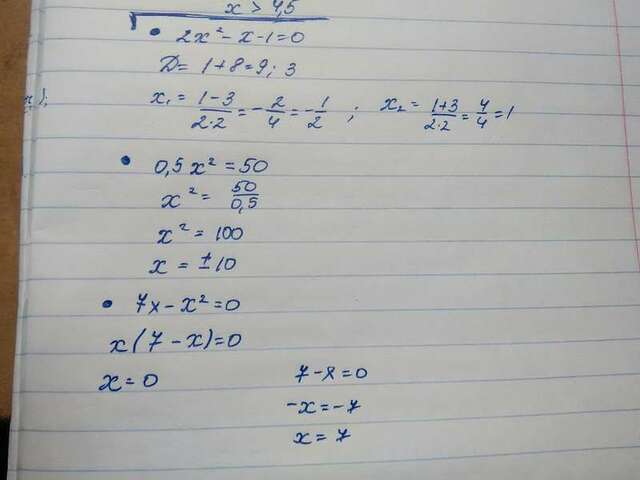 x > 4,5
• 2x² - x - 1 = 0
D = 1 + 8 = 9; 3
x₁ = (1-3)/(2·2) = -2/4 = -1/2 ; x₂ = (1+3)/(2·2) = 4/4 = 1
• 0,5x² = 50
x² = 50/0,5
x² = 100
x = ±10
• 7x - x² = 0
x(7 - x) = 0
x = 0 7 - x = 0
-x = -7
x = 7